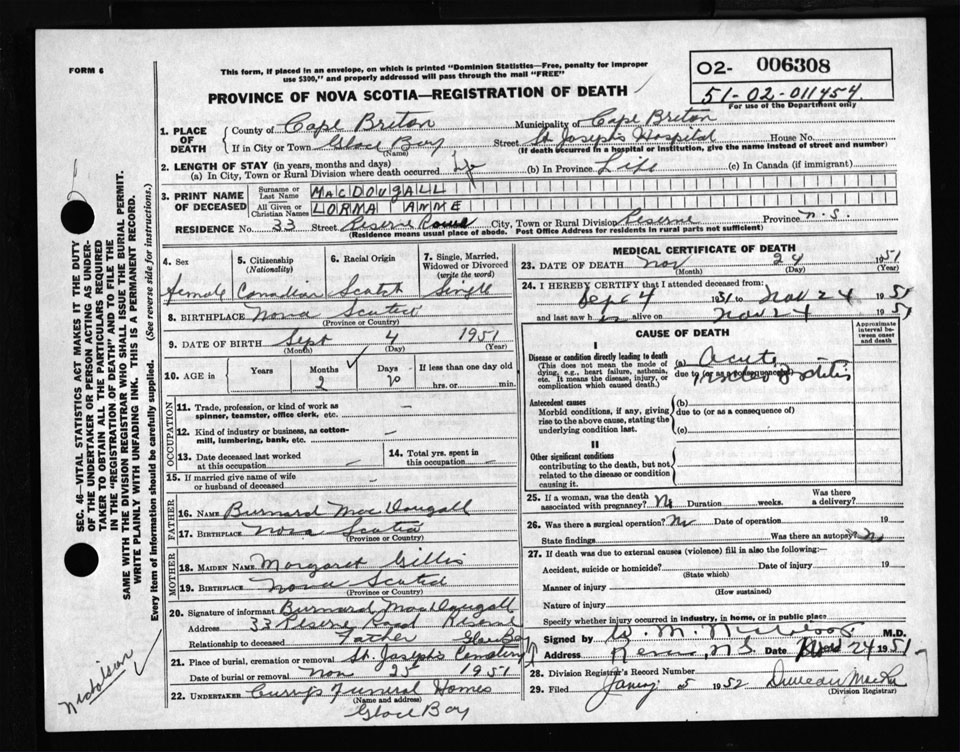 FORM 6
This form, if placed in an envelope, on which is printed "Dominion Statistics—Free, penalty for improper
use $300," and properly addressed will pass through the mail "FREE"
O2- 006308
51-02-011454
For use of the Department only
PROVINCE OF NOVA SCOTIA—REGISTRATION OF DEATH
1. PLACE OF DEATH
County of Cape Breton Municipality of Cape Breton
If in City or Town Glace Bay Street St Joseph's Hospital House No.
(Name) (If death occurred in a hospital or institution, give the name instead of street and number)
2. LENGTH OF STAY (in years, months and days)
(a) In City, Town or Rural Division where death occurred (b) In Province Life (c) In Canada (if immigrant)
3. PRINT NAME OF DECEASED
Surname or Last Name MACDOUGALL
All Given or Christian Names LORMA ANNE
RESIDENCE No. 33 Street Reserve City, Town or Rural Division Reserve Province N.S.
(Residence means usual place of abode. Post Office Address for residents in rural parts not sufficient)
4. Sex
female
5. Citizenship
(Nationality)
Canadian
6. Racial Origin
Scotch
7. Single, Married,
Widowed or Divorced
(write the word)
Single
8. BIRTHPLACE Nova Scotia
(Province or Country)
9. DATE OF BIRTH Sept 4 1951
(Month) (Day) (Year)
10. AGE in Years Months Days If less than one day old
2 20 hrs. or min.
OCCUPATION
11. Trade, profession, or kind of work as
spinner, teamster, office clerk, etc. —
12. Kind of industry or business, as cotton-
mill, lumbering, bank, etc. —
13. Date deceased last worked
at this occupation —
14. Total yrs. spent in
this occupation —
15. If married give name of wife
or husband of deceased -
FATHER
16. NAME Burnard MacDougall
17. BIRTHPLACE Nova Scotia
(Province or Country)
MOTHER
18. MAIDEN NAME Margaret Gillis
19. BIRTHPLACE Nova Scotia
(Province or Country)
20. Signature of informant Burnard MacDougall
Address 33 Reserve Road Reserve
Relationship to deceased Father Glace Bay
21. Place of burial, cremation or removal St. Joseph's Cemetery
Date of burial or removal Nov 25 1951
22. UNDERTAKER Curry's Funeral Homes
(Name and address)
Glace Bay
MEDICAL CERTIFICATE OF DEATH
23. DATE OF DEATH Nov 24 1951
(Month) (Day) (Year)
24. I HEREBY CERTIFY that I attended deceased from:
Sept 4 1951 to Nov 24 1951
and last saw h alive on Nov 24 1951
CAUSE OF DEATH
Approximate
interval be-
tween onset
and death
I
Disease or condition directly leading to death
(This does not mean the mode of
dying, e.g., heart failure, asthenia,
etc. It means the disease, injury, or
complication which caused death.)
(a) Acute
due to (or as a consequence of)
Antecedent causes
Morbid conditions, if any, giving
rise to the above cause, stating the
underlying condition last.
(b)
due to (or as a consequence of)
(c)
II
Other significant conditions
contributing to the death, but not
related to the disease or condition
causing it.
25. If a woman, was the death
associated with pregnancy? No Duration weeks. Was there
a delivery?
26. Was there a surgical operation? No Date of operation 19
State findings Was there an autopsy? No
27. If death was due to external causes (violence) fill in also the following:
Accident, suicide or homicide? Date of injury 19
(State which)
Manner of injury
(How sustained)
Nature of injury
Specify whether injury occurred in industry, in home, or in public place
Signed by W. M. M.D.
Address N.S. Date 24 1951
28. Division Registrar's Record Number
29. Filed January 5 1952 Duncan
(Division Registrar)
SEC. 46—VITAL STATISTICS ACT MAKES IT THE DUTY
OF THE UNDERTAKER OR PERSON ACTING AS UNDER-
TAKER TO OBTAIN ALL THE PARTICULARS REQUIRED
IN THE "REGISTRATION OF DEATH" AND TO FILE THE
SAME WITH THE DIVISION REGISTRAR WHO SHALL ISSUE THE BURIAL PERMIT.
WRITE PLAINLY WITH UNFADING INK. THIS IS A PERMANENT RECORD.
Every item of information should be carefully supplied. (See reverse side for instructions.)
Nicholson